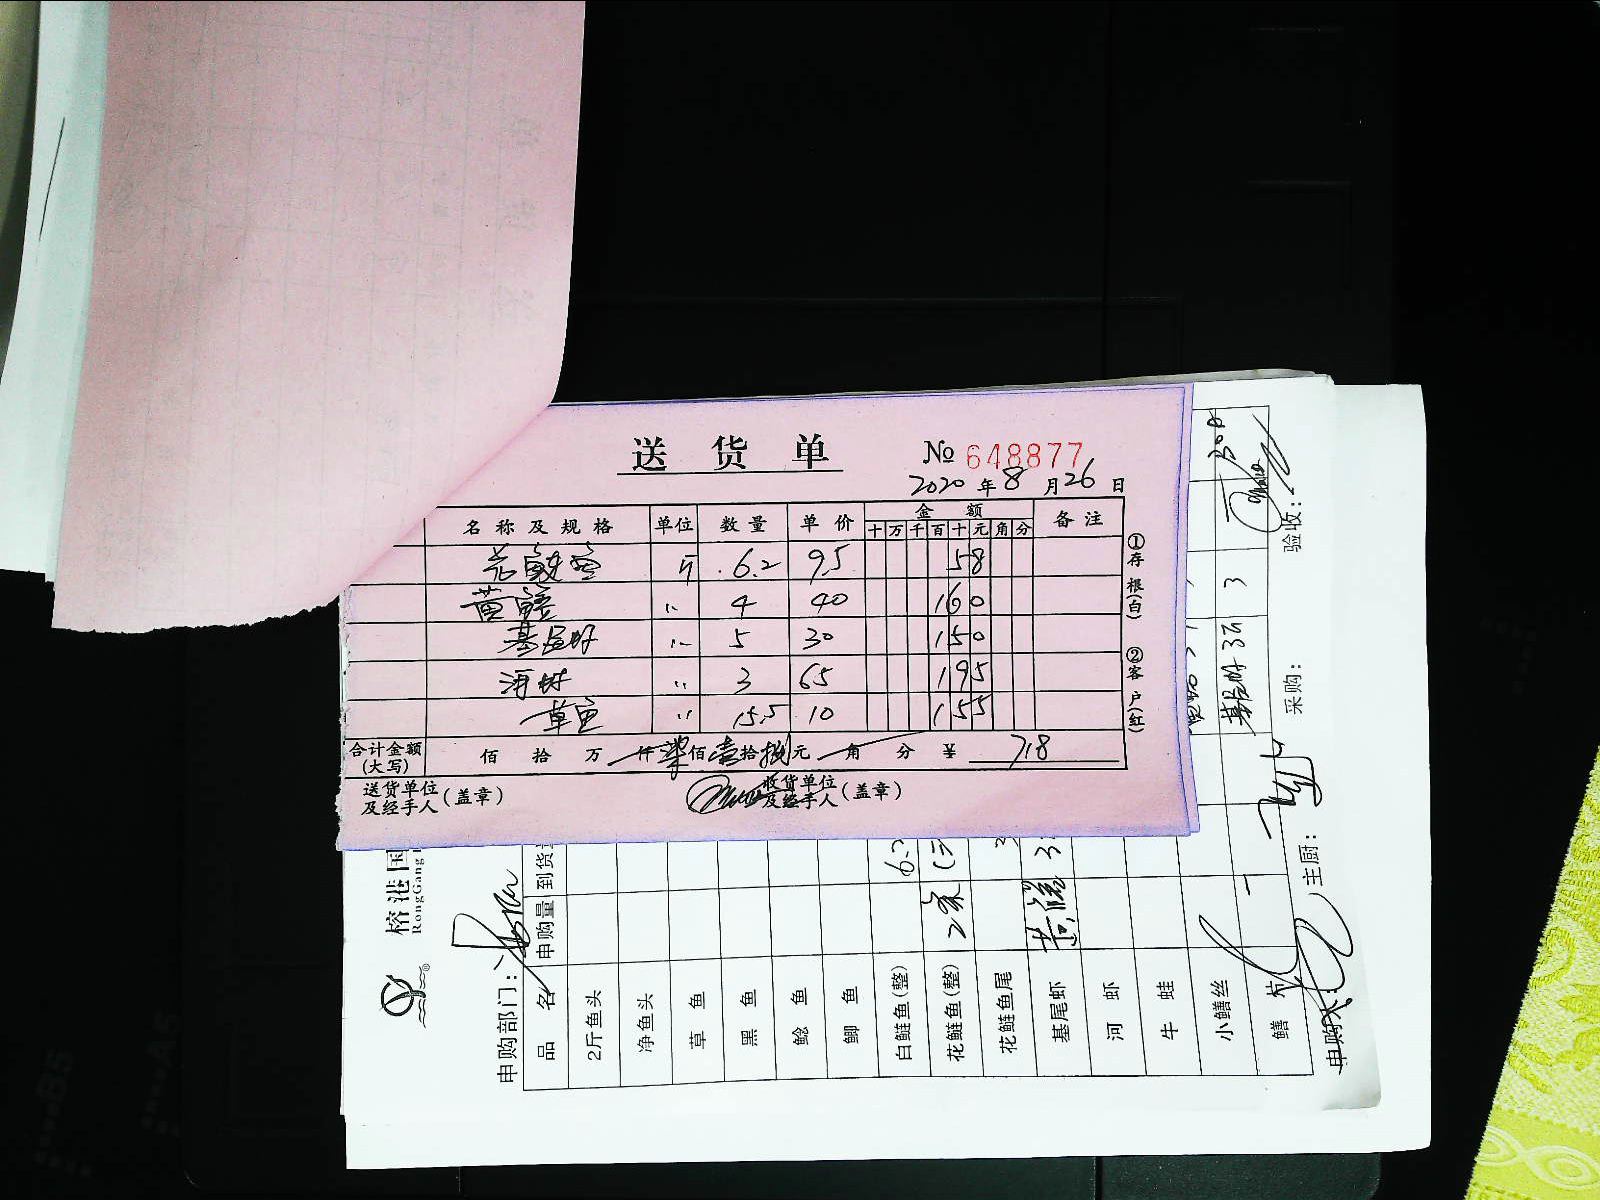 送货单
№ 648877
2020年8月26日
名称及规格 单位 数量 单价 金额 备注
十 万 千 百 十 元 角 分
花鲢 斤 6.2 9.5 58
黄鳝 〃 4 40 160
基尾虾 〃 5 30 150
河虾 〃 3 65 195
草鱼 〃 15.5 10 155
合计金额(大写) 佰 拾 万 仟柒佰壹拾捌元 角 分 ¥ 718
送货单位及经手人(盖章) 收货单位及经手人(盖章)
①存根(白) ②客户(红)
榕港国
RongGang
申购部门:
品名 申购量 到货
2斤鱼头
净鱼头
草鱼
黑鱼
鲶鱼
鲫鱼
白鲢鱼(整)
花鲢鱼(整) 2条
花鲢鱼尾
基尾虾 黄鳝
河虾
牛蛙
小鳝丝
鳝
基尾虾 3斤 3
主厨: 采购: 验收:
B5
A5